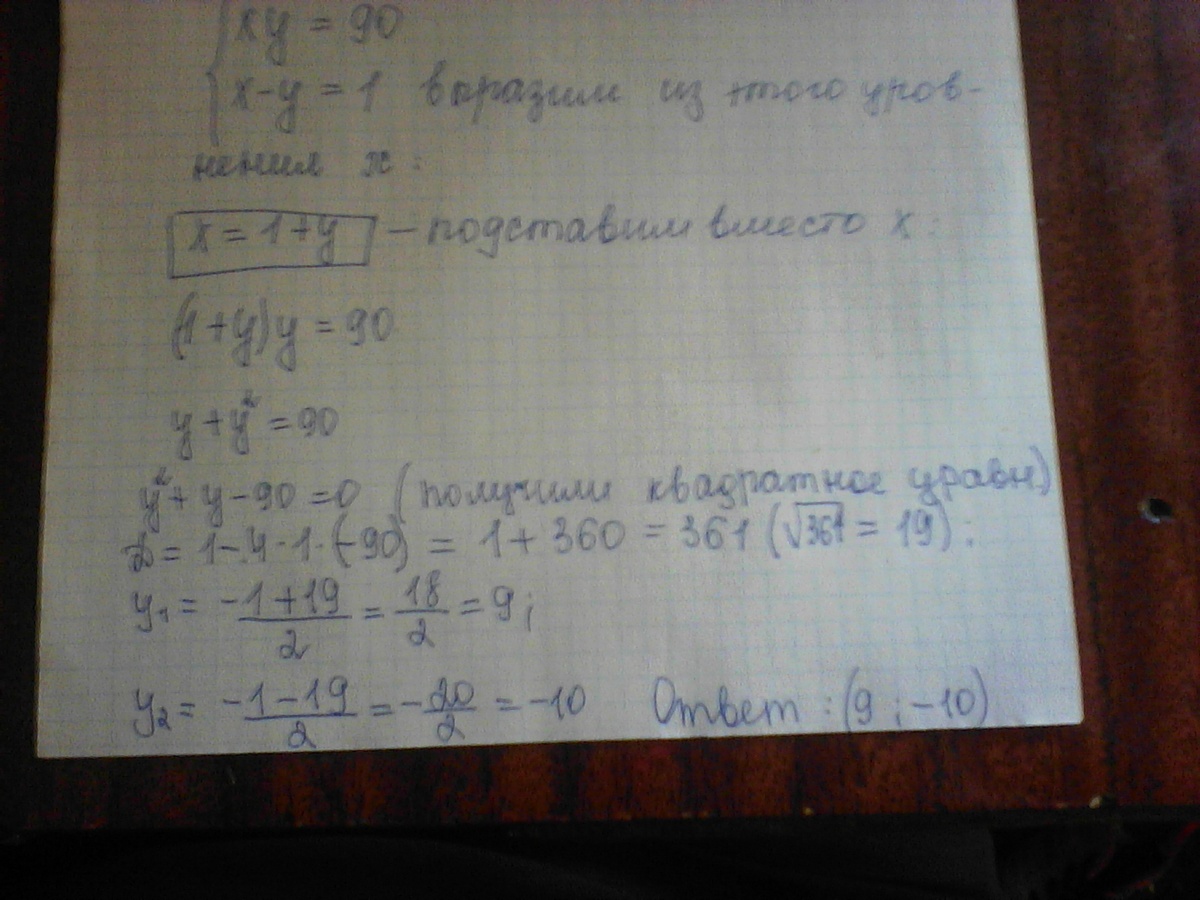 xy = 90
x-y = 1 выразим из этого уров-
нения x:
x = 1+y – подставим вместо x:
(1+y)y = 90
y+y² = 90
y²+y-90=0 (получили квадратное уравн)
D = 1-4·1·(-90) = 1+360 = 361 (√361 = 19);
y₁ = -1+19/2 = 18/2 = 9;
y₂ = -1-19/2 = -20/2 = -10 Ответ: (9;-10)